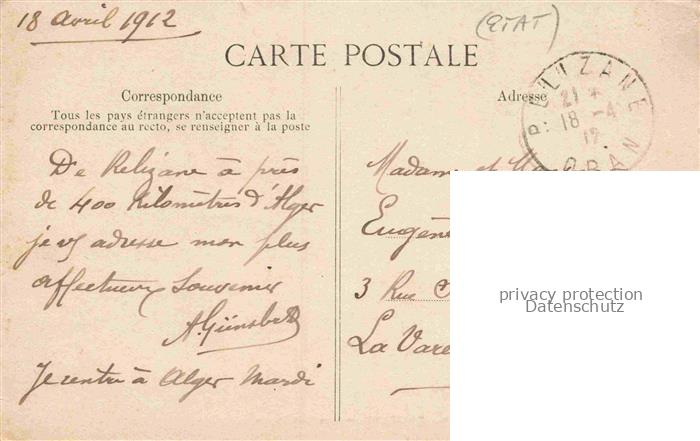 18 avril 1912
(ETAT)
CARTE POSTALE
Correspondance
Tous les pays étrangers n'acceptent pas la
correspondance au recto, se renseigner à la poste
De Relizane à près
de 400 Kilomètres d'Alger
je vs adresse mon plus
affectueux Souvenir
Je rentre à Alger Mardi
Adresse
RELIZANE
21
18 -4
12
ORAN
Madame et
Eugène
3 Rue
La Vare
privacy protection
Datenschutz